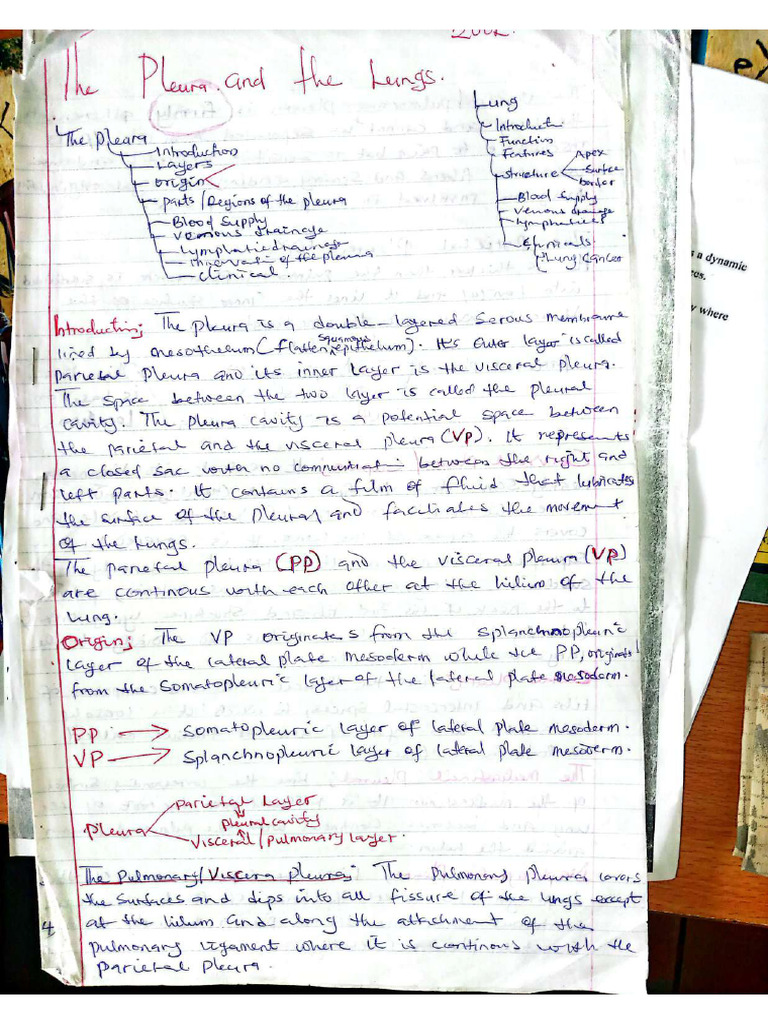 200L.
The Pleura and the Lungs.
The Pleura
Introduction
Layers
origin
parts/Regions of the pleura
Blood Supply
venous drainage
Lymphatic drainage
innervation of the pleura
clinical.
Lung
Introduction
Function
Features
structure
Apex
Surface
border
Blood Supply
venous drainage
Lymphatics
Clinicals
Lung Cancer
s a dynamic
es.
y where
Introduction; The pleura is a double-layered Serous membrane
lined by mesothelium (flatten squamous epithelium). It's outer layer is called
parietal pleura and its inner layer is the visceral pleura.
The space between the two layer is called the pleural
cavity. The pleura cavity is a potential space between
the parietal and the visceral pleura (VP). It represents
a closed sac with no communication between the right and
left parts. It contains a film of fluid that lubricates
the surface of the pleural and faciliates the movement
of the lungs.
The parietal pleura (PP) and the visceral pleura (VP)
are continous with each other at the hilium of the
lung.
Origin; The VP originates from the splanchnopleuric
layer of the lateral plate mesoderm while the PP, originate
from the somatopleuric layer of the lateral plate mesoderm.
PP → somatopleuric layer of lateral plate mesoderm.
VP → splanchnopleuric layer of lateral plate mesoderm.
Parietal Layer
pleural cavity
pleura
Visceral/pulmonary layer.
The Pulmonary/Viscera pleura; The pulmonary pleura covers
the surfaces and dips into all fissure of the lungs except
at the hilum and along the attachment of the
pulmonary ligament where it is continous with the
parietal pleura.
4